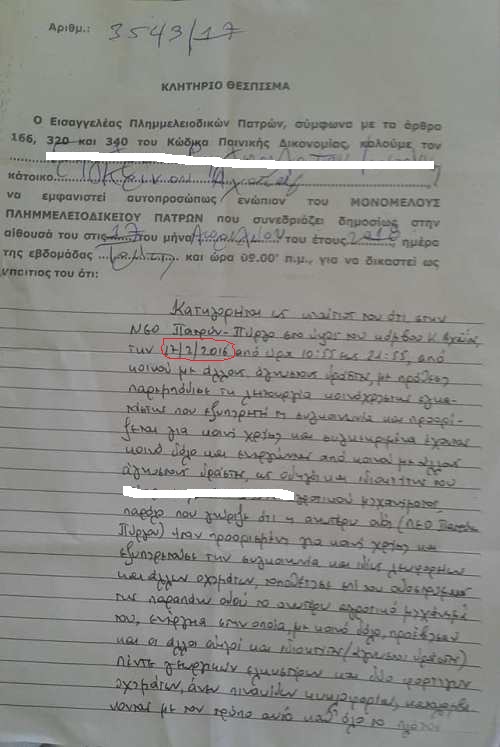 Αριθμ.: 3543/17
ΚΛΗΤΗΡΙΟ ΘΕΣΠΙΣΜΑ
Ο Εισαγγελέας Πλημμελειοδικών Πατρών, σύμφωνα με τα άρθρα
166, 320 και 340 του Κώδικα Ποινικής Δικονομίας, καλούμε τον
κάτοικο
να εμφανιστεί αυτοπροσώπως ενώπιον του ΜΟΝΟΜΕΛΟΥΣ
ΠΛΗΜΜΕΛΕΙΟΔΙΚΕΙΟΥ ΠΑΤΡΩΝ που συνεδριάζει δημοσίως στην
αίθουσά του στις 17 του μήνα Απριλίου του έτους 2018 ημέρα
της εβδομάδας και ώρα 09.00' π.μ., για να δικαστεί ως
υπαίτιος του ότι:
Κατηγορείται ως υπαίτιος του ότι στην
ΝΕΟ Πατρών-Πύργου στο ύψος του κόμβου Κ. Αχαΐας
την 17/2/2016 από ώρα 10:55 έως 21:55, από
κοινού με άλλους άγνωστους δράστες, με πρόθεση
παρεμπόδισε τη λειτουργία κοινόχρηστης εγκα-
τάστασης που εξυπηρετεί τη συγκοινωνία και προορί-
ζεται για κοινή χρήση και συγκεκριμένα έχοντας
κοινό δόλο και ενεργώντας από κοινού με άλλους
άγνωστους δράστες, ως οδηγός και ιδιοκτήτης του
αγροτικού μηχανήματος,
παρόλο που γνώριζε ότι η ανωτέρω οδός (ΝΕΟ Πατρών
Πύργου) ήταν προορισμένη για κοινή χρήση και
εξυπηρετούσε την συγκοινωνία και ιδίως λεωφορείων
και άλλων οχημάτων, τοποθέτησε επί του οδοστρώματος
της παραπάνω οδού το ανωτέρω αγροτικό μηχάνημά
του, ενέργεια στην οποία, με κοινό δόλο, προέβησαν
και οι άλλοι οδηγοί και ιδιοκτήτες (άγνωστοι δράστες)
πέντε γεωργικών ελκυστήρων και δύο φορτηγών
οχημάτων, άνευ πινακίδων κυκλοφορίας, καταλαμβά-
νοντας με τον τρόπο αυτό καθ' όλο το πλάτος